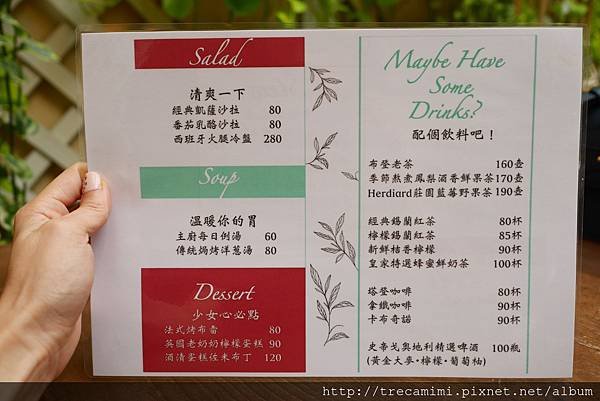 Salad
清爽一下
經典凱薩沙拉 80
番茄乳酪沙拉 80
西班牙火腿冷盤 280
Soup
溫暖你的胃
主廚每日例湯 60
傳統焗烤洋蔥湯 80
Dessert
少女心必點
法式烤布蕾 80
英國老奶奶檸檬蛋糕 90
酒清蛋糕佐米布丁 120
Maybe Have
Some
Drinks?
配個飲料吧！
布登老茶 160壺
季節熬煮鳳梨酒香鮮果茶 170壺
Herdiard莊園藍莓野果茶 190壺
經典錫蘭紅茶 80杯
檸檬錫蘭紅茶 85杯
新鮮桔香檸檬 90杯
皇家特選蜂蜜鮮奶茶 100杯
塔登咖啡 80杯
拿鐵咖啡 90杯
卡布奇諾 90杯
史帝戈奧地利精選啤酒 100瓶
(黃金大麥•檸檬•葡萄柚)
http://trecamimi.pixnet.net/album